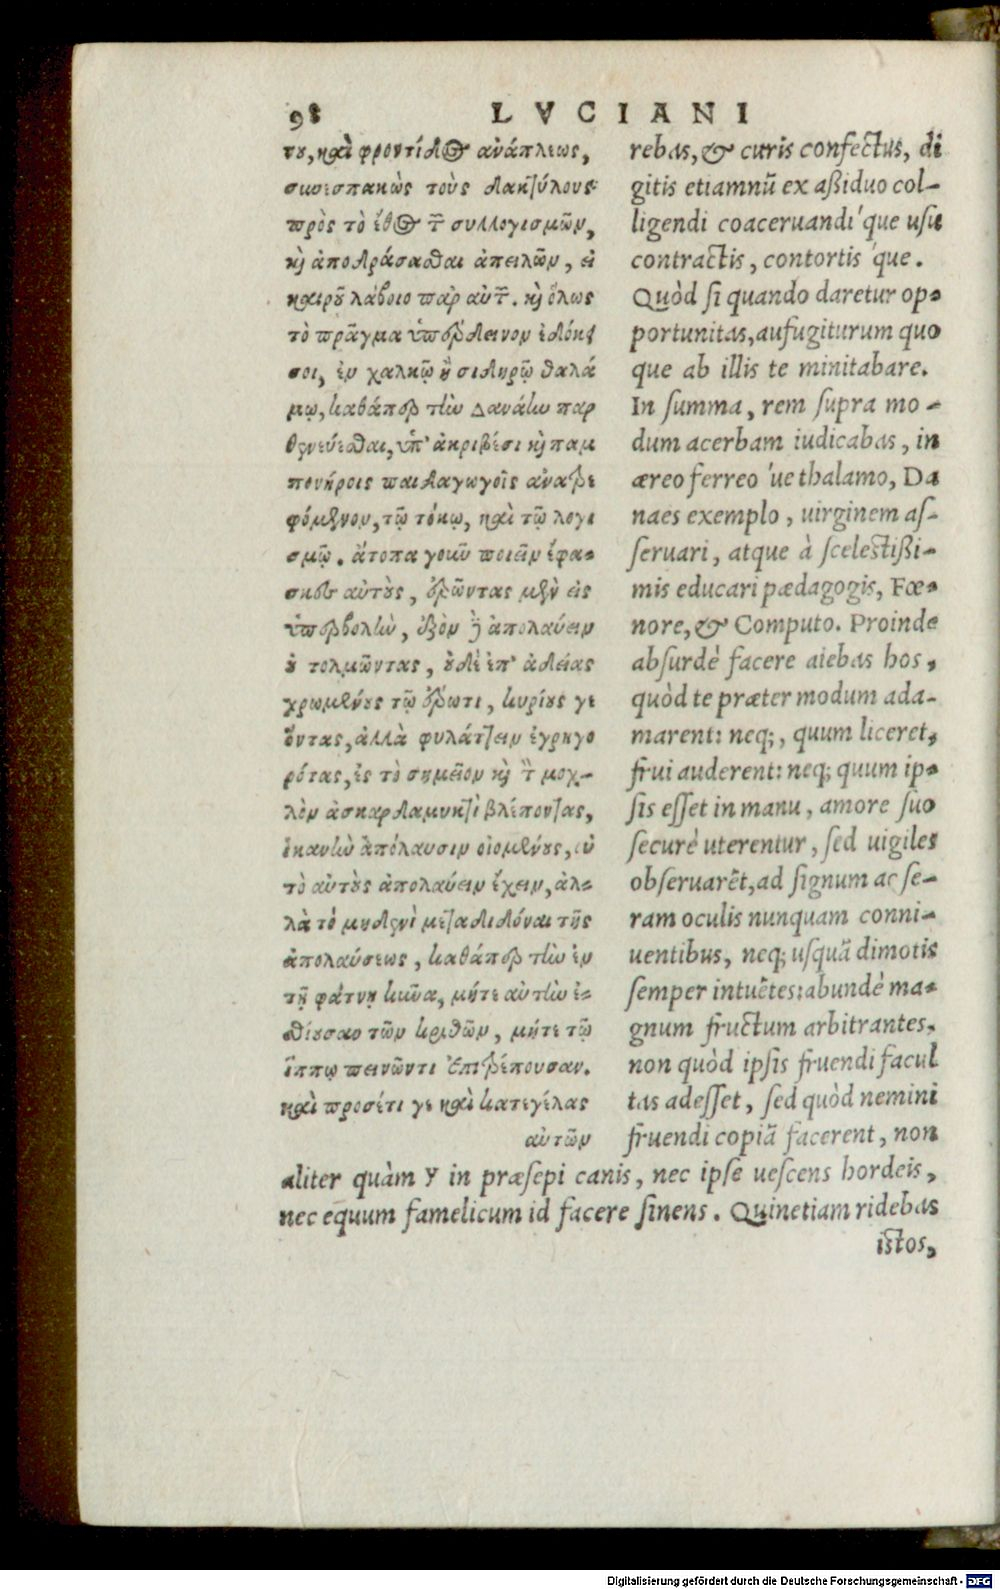 98 LVCIANI
του, καὶ φροντίδος ἀνάπλεως,
συνεσπακὼς τοὺς δακτύλους
πρὸς τὸ ἔθος τ͂ συλλογισμῶν,
κὶ ἀποδράσασθαι ἀπειλῶν, εἰ
καιροῦ λάβοιο παρ αὐτ͂. κὶ ὅλως
τὸ πρᾶγμα ὑπέρδεινον ἐδόκει
σοι, ἐν χαλκῷ ἢ σιδηρῷ θαλά
μῳ, καθάπερ τὴν Δανάην παρ
θενεύεσθαι, ὑπ' ἀκριβέσι κὶ παμ
πονήροις παιδαγωγοῖς ἀνατρε
φόμενον, τῷ τόκῳ, καὶ τῷ λογι
σμῷ. ἄτοπα γοῦν ποιεῖν ἔφα-
σκες αὐτοὺς, ἐρῶντας μὲν εἰς
ὑπερβολὴν, ἐξὸν δὲ ἀπολαύειν
οὐ τολμῶντας, οὐδὲ ἐπ' ἀδείας
χρωμένους τῷ ἔρωτι, κυρίους γε
ὄντας, ἀλλὰ φυλάττειν ἐγρηγο
ρότας, ἐς τὸ σημεῖον κὶ τ̀ μοχ-
λὸν ἀσκαρδαμυκτὶ βλέποντας,
ἱκανὴν ἀπόλαυσιν οἰομένους, οὐ
τὸ αὐτοὺς ἀπολαύειν ἔχειν, ἀλ-
λὰ τὸ μηδενὶ μεταδιδόναι τῆς
ἀπολαύσεως, καθάπερ τὴν ἐν
τῇ φάτνῃ κύνα, μήτε αὐτὴν ἐ-
σθίουσαν τῶν κριθῶν, μήτε τῷ
ἵππῳ πεινῶντι ἐπιτρέπουσαν.
καὶ προσέτι γε καὶ κατεγέλας
αὐτῶν
rebas, & curis confectus, di
gitis etiamnũ ex aßiduo col-
ligendi coaceruandi'que usu
contractis, contortis'que.
Quòd si quando daretur op-
portunitas, aufugiturum quo
que ab illis te minitabare.
In summa, rem supra mo-
dum acerbam iudicabas, in
æreo ferreo'ue thalamo, Da
naes exemplo, uirginem as-
seruari, atque à scelestißi-
mis educari pædagogis, Fœ-
nore, & Computo. Proinde
absurdè facere aiebas hos,
quòd te præter modum ada-
marent: neq;, quum liceret,
frui auderent: neq; quum ip-
sis esset in manu, amore suo
securè uterentur, sed uigiles
obseruarẽt, ad signum ac se-
ram oculis nunquam conni-
uentibus, neq; usquã dimotis
semper intuẽtes: abundè ma-
gnum fructum arbitrantes,
non quòd ipsis fruendi facul
tas adesset, sed quòd nemini
fruendi copiã facerent, non
aliter quàm in præsepi canis, nec ipse uescens hordeis,
nec equum famelicum id facere sinens. Quinetiam ridebas
istos,
Digitalisierung gefördert durch die Deutsche Forschungsgemeinschaft - DFG